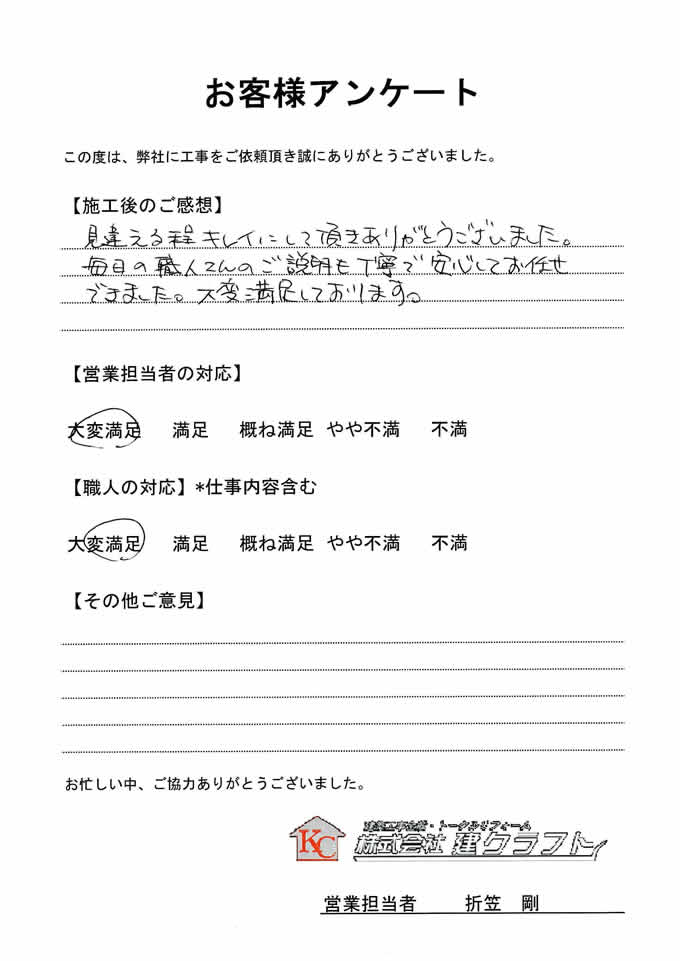 お客様アンケート
この度は、弊社に工事をご依頼頂き誠にありがとうございました。
【施工後のご感想】
見違える程キレイにして頂きありがとうございました。
毎日の職人さんのご説明も丁寧で安心してお任せ
できました。大変満足しております。
【営業担当者の対応】
大変満足 満足 概ね満足 やや不満 不満
【職人の対応】*仕事内容含む
大変満足 満足 概ね満足 やや不満 不満
【その他ご意見】
お忙しい中、ご協力ありがとうございました。
KC
・トータルリフォーム
株式会社 建クラフト
営業担当者 折笠 剛